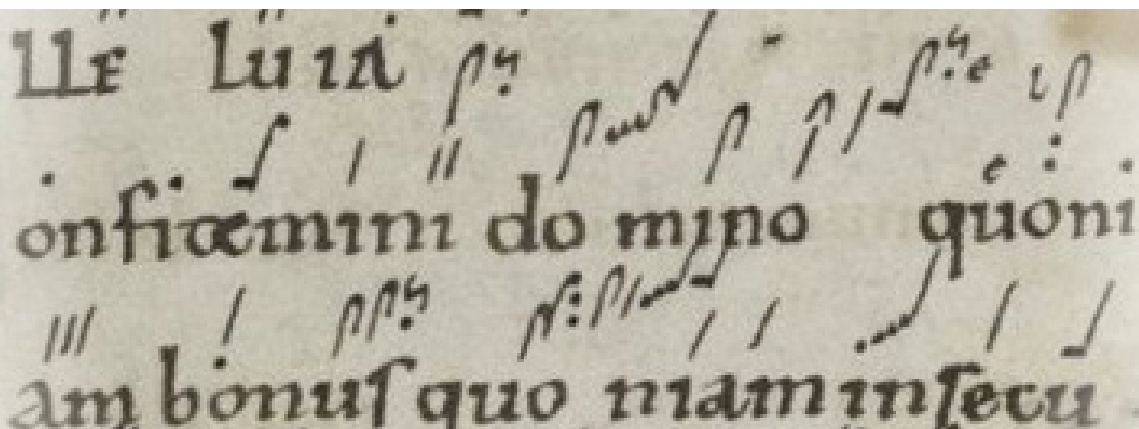 LLE LUIA
onfitemini domino quoni
am bonus quoniam in secu